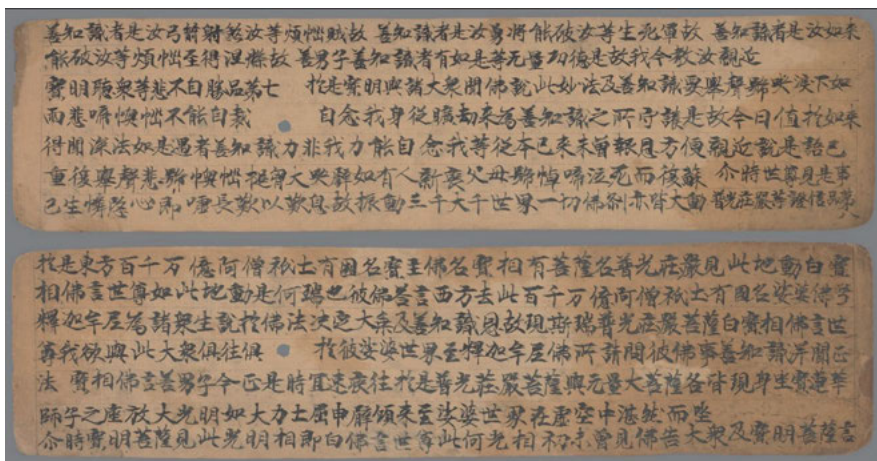 善知識者是汝弓箭射煞汝等煩惱賊故 善知識者是汝勇將能破汝等生死軍故 善知識者是汝如來
能破汝等煩惱至得涅槃故 善男子善知識者有如是等无量功德是故我今教汝親近
寶明聽衆等悲不自勝品第七 於是寶明與諸大衆聞佛說此妙法及善知識要舉聲號哭淚下如
而悲啼懊惱不能自裁 自念我身從曠劫來為善知識之所守護是故今日值於如來
得聞深法如是遇者善知識力非我力能自念我等從本已來未曾報恩方便親近說是語已
重復舉聲悲號懊惱搥胷大哭辟如有人新喪父母號悼啼泣死而復蘇 尒時世尊見是事
已生憐愍心即噓長歎以歎息故振動三千大千世界一切佛剎亦皆大動 普光莊嚴菩薩證信品第八
於是東方百千万億阿僧祇土有國名寶主佛名寶相有菩薩名普光莊嚴見此地動白寶
相佛言世尊如此地動是何瑞也彼佛荅言西方去此百千万億阿僧祇土有國名娑婆佛号
釋迦牟尼為諸衆生說於佛法決定大乘及善知識恩故現斯瑞普光莊嚴菩薩白寶相佛言世
尊我欲與此大衆俱往俱 於彼娑婆世界至釋迦牟尼佛所請問彼佛事善知識并聞正
法 寶相佛言善男子今正是時宜速疾往於是普光莊嚴菩薩與无量大菩薩各皆現身坐寶蓮華
師子之座放大光明如大力士屈申臂頃來至娑婆世界在虛空中湛然而坐
尒時寶明菩薩見此光明相即白佛言世尊此何光相初未曾見佛告大衆及寶明菩薩言